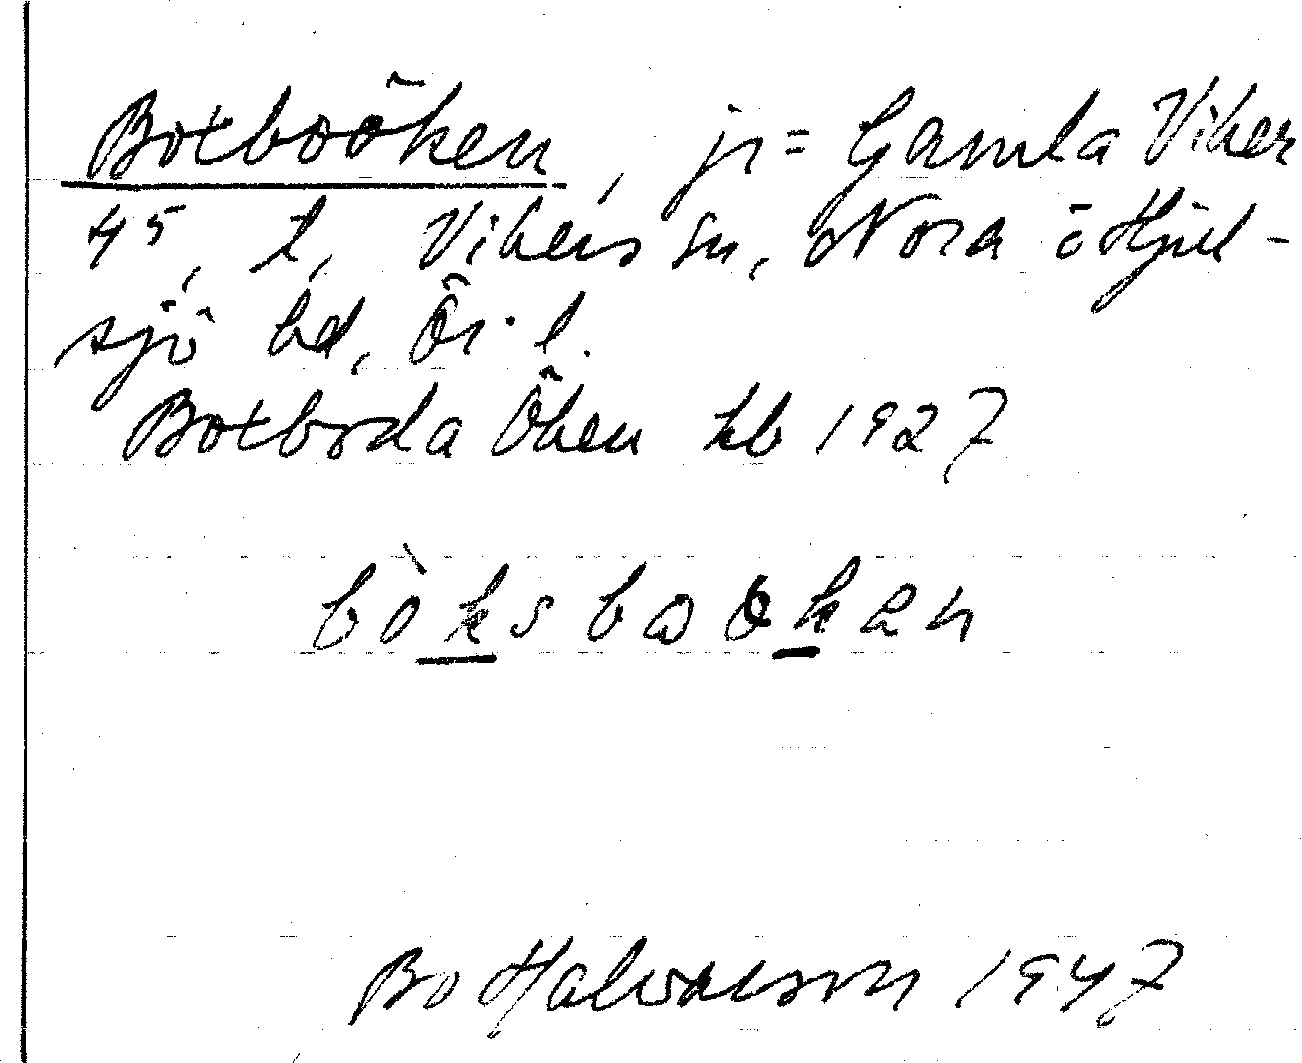 Boxboöken, jr = Gamla Viker
45, t, Vikers sn, Nora o Hjul-
sjö bd, Ör. l.
Boxboda Öken kb 1927
bòksbωøkan
Bo Halvarson 1947